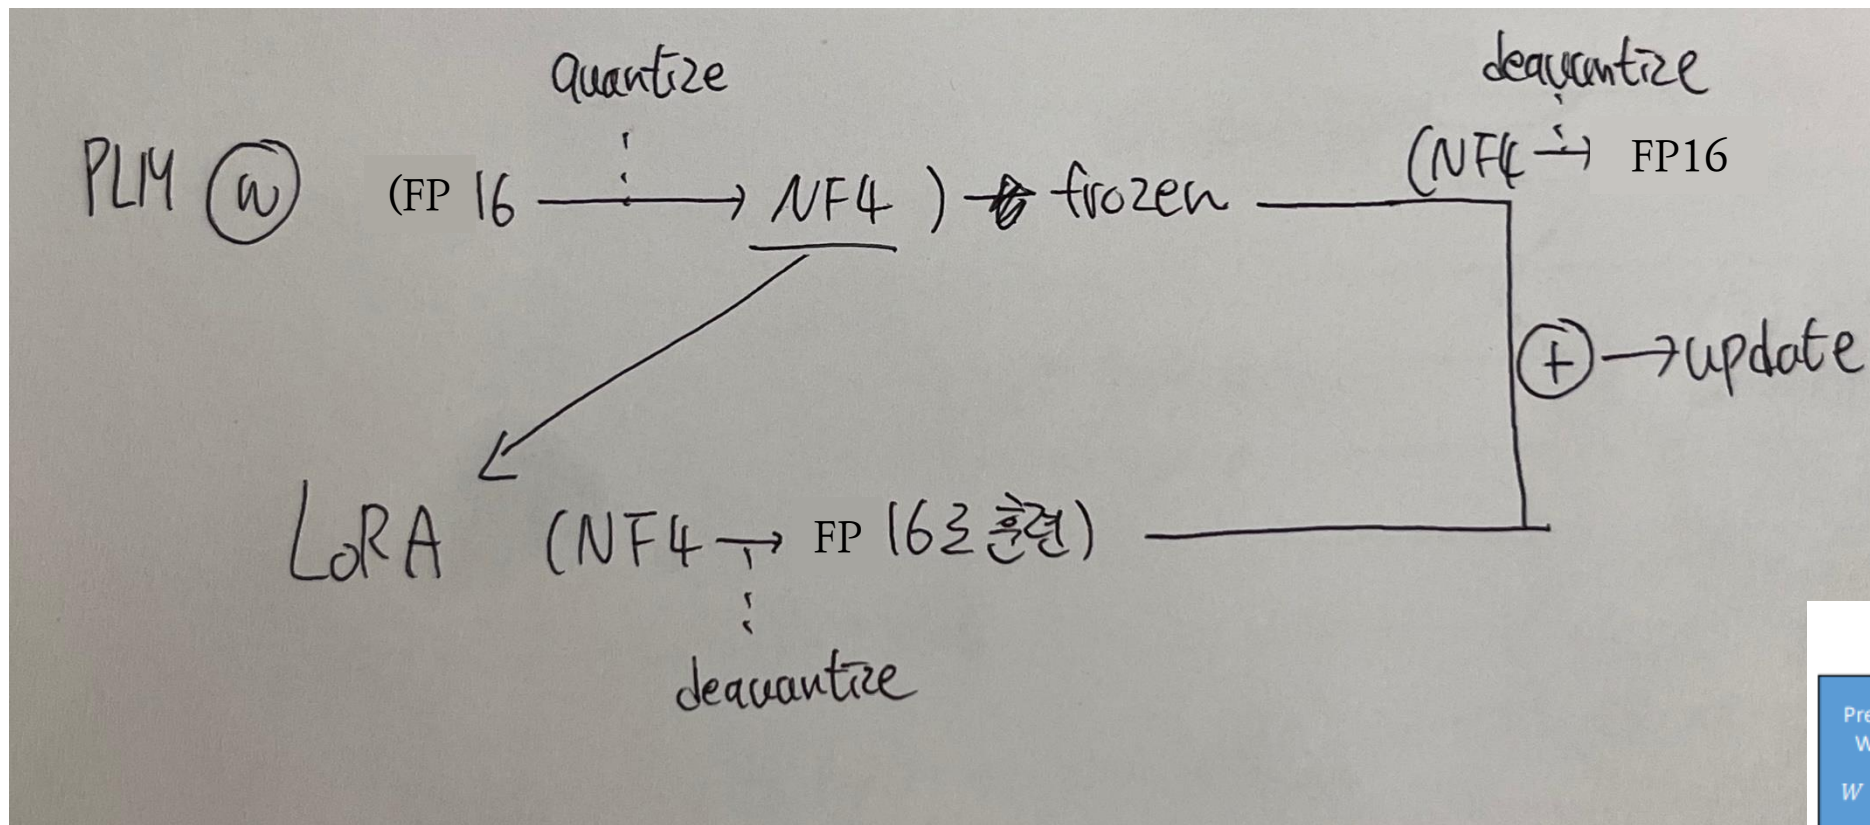 quantize
dequantize
PLM W (FP 16 → NF4 ) → frozen
(NF4 → FP16
+ → update
LoRA (NF4 → FP 16로 훈련)
dequantize
Pre
W
W